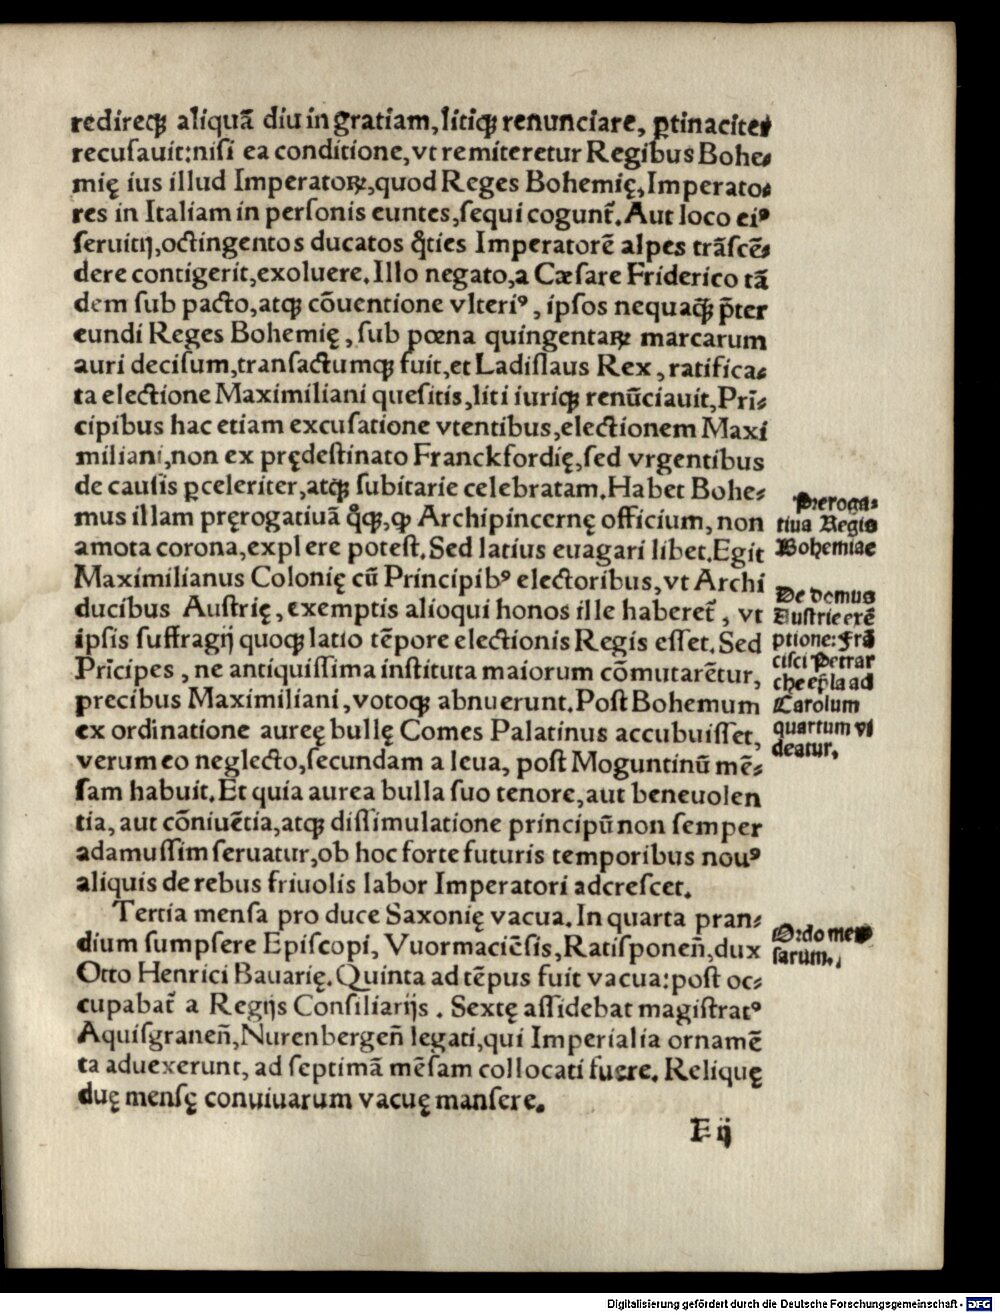 redireqꝫ aliquã diu in gratiam, litiqꝫ renunciare, ꝑtinaciter
recusauit:nisi ea conditione,vt remiteretur Regibus Bohe⸗
mię ius illud Imperatorꝝ,quod Reges Bohemię,Imperato⸗
res in Italiam in personis euntes,sequi cogunt᷑.Aut loco eiꝰ
seruitij,octingentos ducatos q̃ties Imperatorẽ alpes trãscẽ⸗
dere contigerit,exoluere.Illo negato,a Cæsare Friderico tã
dem sub pacto,atqꝫ cõuentione vlteriꝰ, ipsos nequaq̃ꝫ p̃ter
eundi Reges Bohemię, sub pœna quingentaꝝ marcarum
auri decisum,transactumqꝫ fuit,et Ladislaus Rex, ratifica⸗
ta electione Maximiliani quesitis,liti iuriqꝫ renũciauit,Prĩ⸗
cipibus hac etiam excusatione vtentibus,electionem Maxi
miliani,non ex prędestinato Franckfordię,sed vrgentibus
de causis ꝑceleriter,atqꝫ subitarie celebratam.Habet Bohe⸗
mus illam pręrogatiuã q̃qꝫ,ꝙ Archipincernę officium, non
amota corona,explere potest.Sed latius euagari libet.Egit
Maximilianus Colonię cũ Principibꝰ electoribus,vt Archi
ducibus Austrię, exemptis alioqui honos ille haberet᷑, vt
ipsis suffragij quoqꝫ latio tẽpore electionis Regis esset.Sed
Prĩcipes, ne antiquissima instituta maiorum cõmutarẽtur,
precibus Maximiliani,votoqꝫ abnuerunt.Post Bohemum
ex ordinatione aureę bullę Comes Palatinus accubuisset,
verum eo neglecto,secundam a leua, post Moguntinũ mẽ⸗
sam habuit.Et quia aurea bulla suo tenore,aut beneuolen
tia, aut cõniuẽtia,atqꝫ dissimulatione principũ non semper
adamussim seruatur,ob hoc forte futuris temporibus nouꝰ
aliquis de rebus friuolis labor Imperatori adcrescet.
Tertia mensa pro duce Saxonię vacua.In quarta pran⸗
dium sumpsere Episcopi, Vuormaciẽsis,Ratisponeñ,dux
Otto Henrici Bauarię.Quinta ad tẽpus fuit vacua:post oc⸗
cupabat᷑ a Regijs Consiliarijs. Sextę assidebat magistratꝰ
Aquisgraneñ,Nurenbergeñ legati,qui Imperialia ornamẽ
ta aduexerunt, ad septimã mẽsam collocati fuere. Relique̜
duę mensę conuiuarum vacuę mansere.
F ij
Preroga⸗
tiua Regis
Bohemiae
De domus
Austrie exẽ
ptione:Frã
cisci Petrar
che ep̃la ad
Carolum
quartum vi
deatur.
Ordo men
sarum.
Digitalisierung gefördert durch die Deutsche Forschungsgemeinschaft - DFG